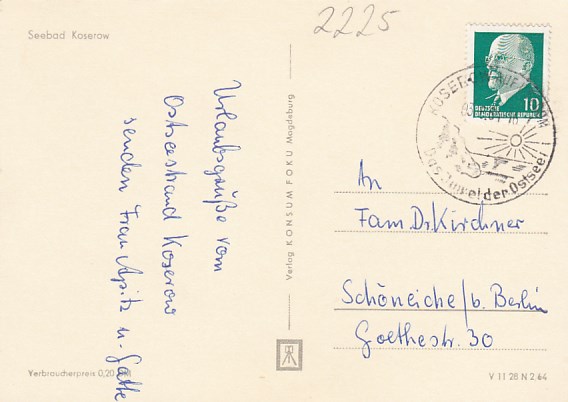 2225
Seebad Koserow
Urlaubsgrüße vom
Ostseestrand Koserow
senden Frau Apitz u. Gatte
Verbraucherpreis 0,20
Verlag KONSUM FOKU Magdeburg
DEUTSCHE
DEMOKRATISCHE REPUBLIK
10
KOSEROW AUF
der Ostsee
An
Fam. Dr. Kirchner
Schöneiche/b. Berlin
Goethestr. 30
V 11 28 N 2 64